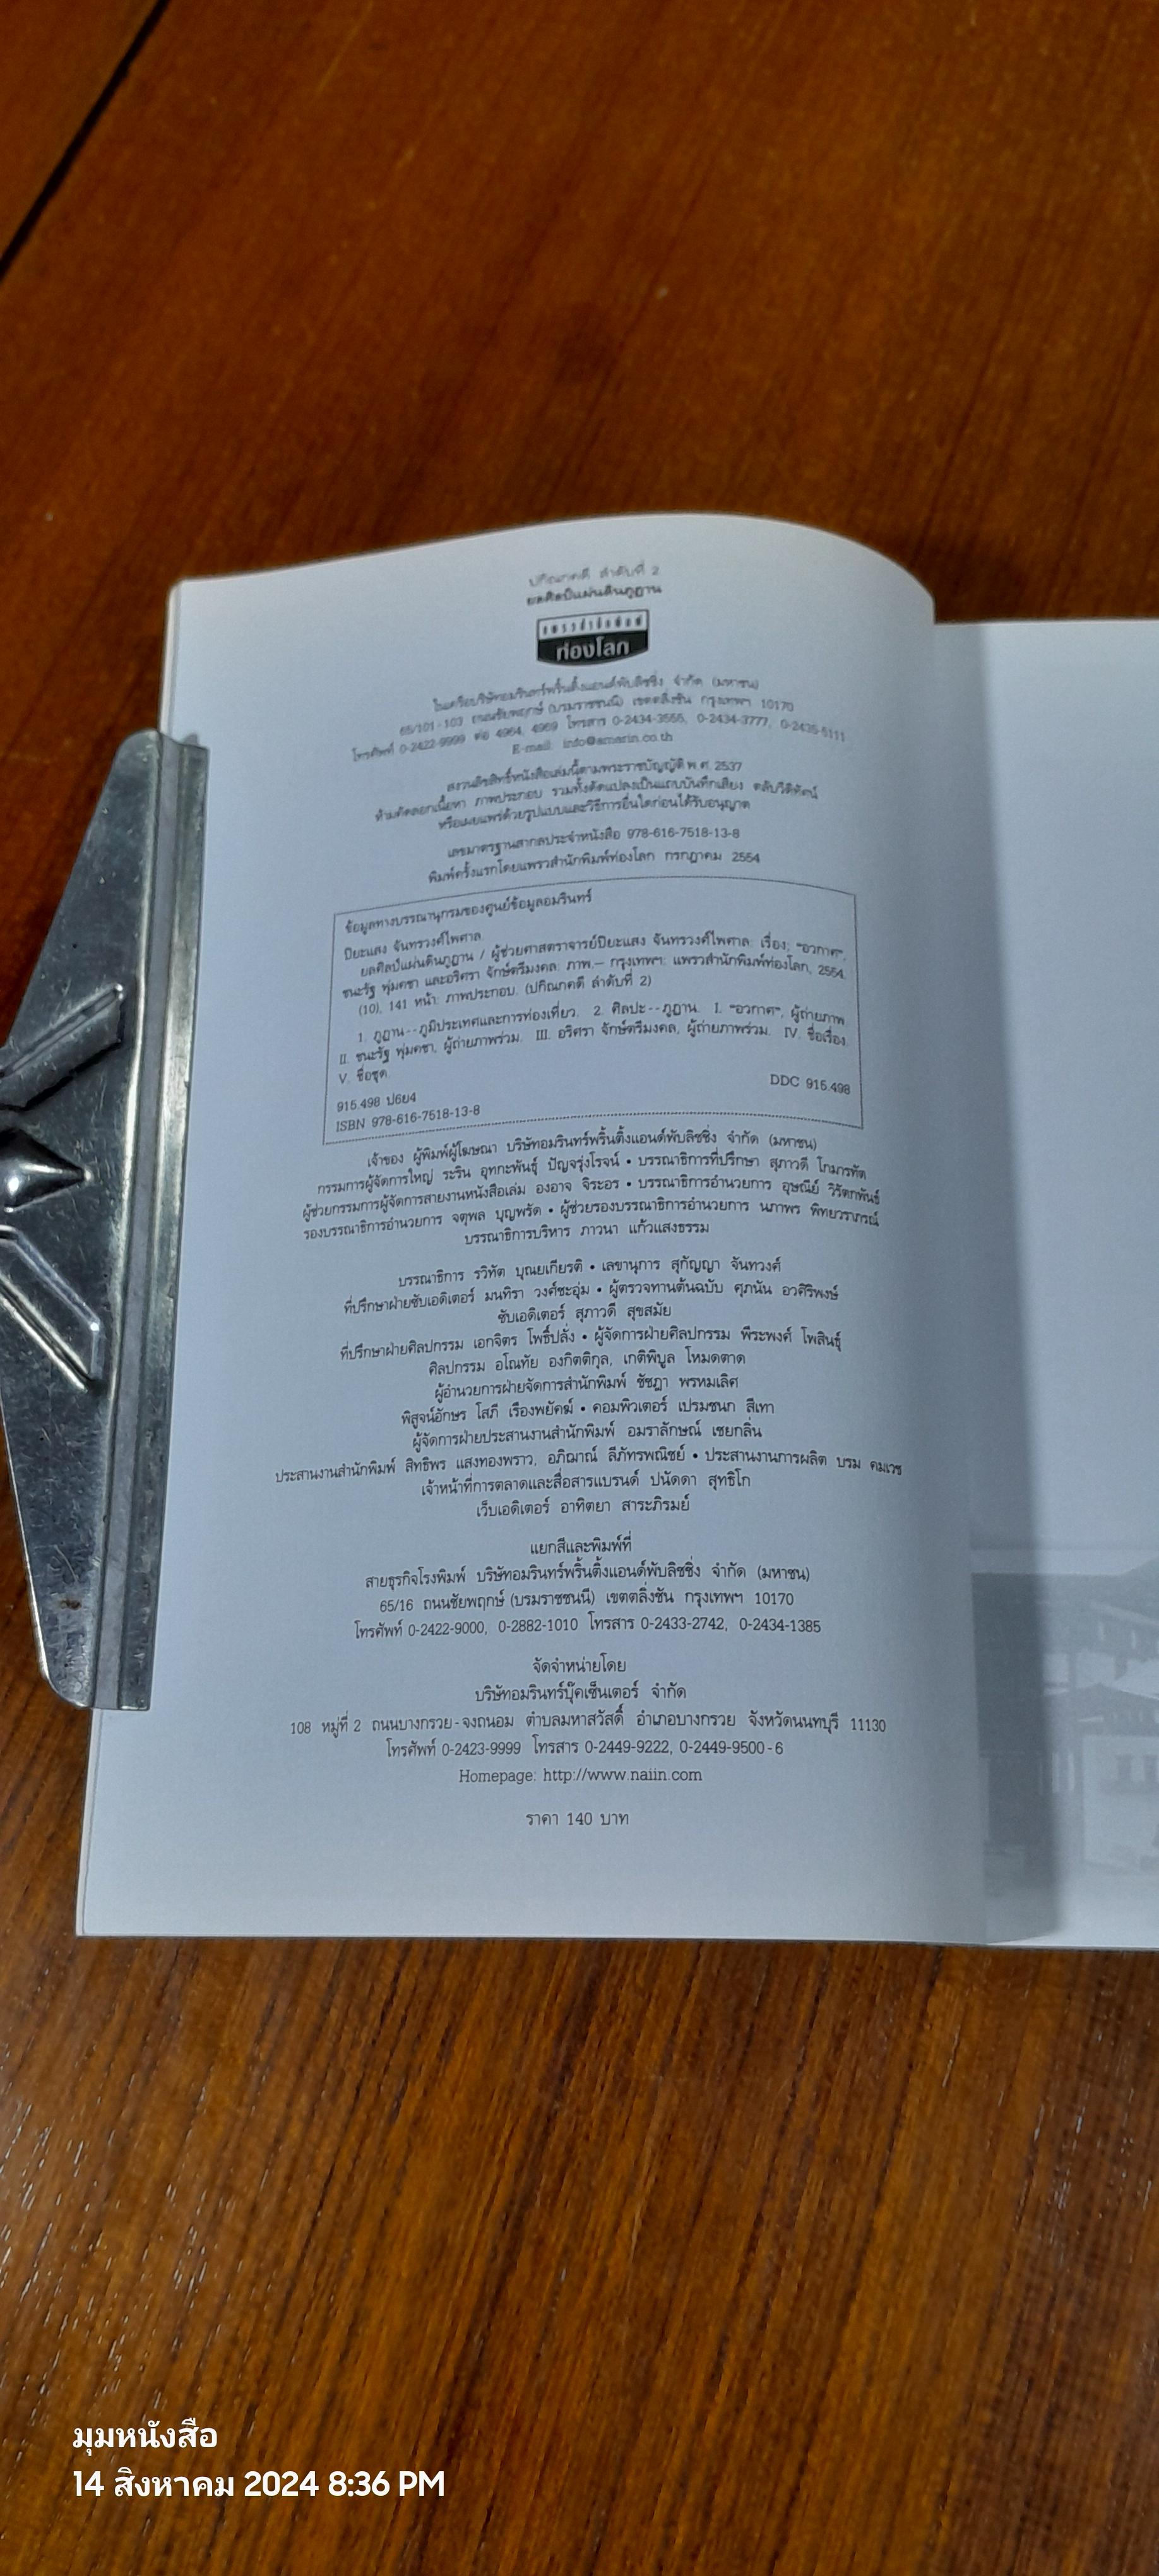 ปกิณกคดี ลำดับที่ 2
ยลศิลป์แผ่นดินภูฏาน
แพรวสำนักพิมพ์
ท่องโลก
ในเครือบริษัทอมรินทร์พริ้นติ้งแอนด์พับลิชชิ่ง จำกัด (มหาชน)
65/101-103 ถนนชัยพฤกษ์ (บรมราชชนนี) เขตตลิ่งชัน กรุงเทพฯ 10170
โทรศัพท์ 0-2422-9999 ต่อ 4964, 4969 โทรสาร 0-2434-3555, 0-2434-3777, 0-2435-5111
E-mail: info@amarin.co.th
สงวนลิขสิทธิ์หนังสือเล่มนี้ตามพระราชบัญญัติ พ.ศ. 2537
ห้ามคัดลอกเนื้อหา ภาพประกอบ รวมทั้งดัดแปลงเป็นแถบบันทึกเสียง ตลับวีดิทัศน์
หรือเผยแพร่ด้วยรูปแบบและวิธีการอื่นใดก่อนได้รับอนุญาต
เลขมาตรฐานสากลประจำหนังสือ 978-616-7518-13-8
พิมพ์ครั้งแรกโดยแพรวสำนักพิมพ์ท่องโลก กรกฎาคม 2554
ข้อมูลทางบรรณานุกรมของศูนย์ข้อมูลอมรินทร์
ปิยะแสง จันทรวงศ์ไพศาล.
ยลศิลป์แผ่นดินภูฏาน / ผู้ช่วยศาสตราจารย์ปิยะแสง จันทรวงศ์ไพศาล: เรื่อง; "อวกาศ",
ชนะรัฐ พุ่มคชา และอริศรา จักษ์ตรีมงคล: ภาพ.-- กรุงเทพฯ: แพรวสำนักพิมพ์ท่องโลก, 2554.
(10), 141 หน้า: ภาพประกอบ. (ปกิณกคดี ลำดับที่ 2)
1. ภูฏาน--ภูมิประเทศและการท่องเที่ยว. 2. ศิลปะ--ภูฏาน. I. "อวกาศ", ผู้ถ่ายภาพ.
II. ชนะรัฐ พุ่มคชา, ผู้ถ่ายภาพร่วม. III. อริศรา จักษ์ตรีมงคล, ผู้ถ่ายภาพร่วม. IV. ชื่อเรื่อง.
V. ชื่อชุด.
915.498 ป6ย4 DDC 915.498
ISBN 978-616-7518-13-8
เจ้าของ ผู้พิมพ์ผู้โฆษณา บริษัทอมรินทร์พริ้นติ้งแอนด์พับลิชชิ่ง จำกัด (มหาชน)
กรรมการผู้จัดการใหญ่ ระริน อุทกะพันธุ์ ปัญจรุ่งโรจน์ • บรรณาธิการที่ปรึกษา สุภาวดี โกมารทัต
ผู้ช่วยกรรมการผู้จัดการสายงานหนังสือเล่ม องอาจ จิระอร • บรรณาธิการอำนวยการ อุษณีย์ วิรัตกพันธ์
รองบรรณาธิการอำนวยการ จตุพล บุญพรัด • ผู้ช่วยรองบรรณาธิการอำนวยการ นภาพร พิทยวราภรณ์
บรรณาธิการบริหาร ภาวนา แก้วแสงธรรม
บรรณาธิการ รวิทัต บุณยเกียรติ • เลขานุการ สุกัญญา จันทวงศ์
ที่ปรึกษาฝ่ายซับเอดิเตอร์ มนทิรา วงศ์ชะอุ่ม • ผู้ตรวจทานต้นฉบับ ศุภนัน อวศิริพงษ์
ซับเอดิเตอร์ สุภาวดี สุขสมัย
ที่ปรึกษาฝ่ายศิลปกรรม เอกจิตร โพธิ์ปลั่ง • ผู้จัดการฝ่ายศิลปกรรม พีระพงศ์ โพสินธุ์
ศิลปกรรม อโณทัย องกิตติกุล, เกติพิบูล โหมดตาด
ผู้อำนวยการฝ่ายจัดการสำนักพิมพ์ ชัชฎา พรหมเลิศ
พิสูจน์อักษร โสภี เรืองพยัคฆ์ • คอมพิวเตอร์ เปรมชนก สีเทา
ผู้จัดการฝ่ายประสานงานสำนักพิมพ์ อมราลักษณ์ เชยกลิ่น
ประสานงานสำนักพิมพ์ สิทธิพร แสงทองพราว, อภิฌาณ์ ลีภัทรพณิชย์ • ประสานงานการผลิต บรม คมเวช
เจ้าหน้าที่การตลาดและสื่อสารแบรนด์ ปนัดดา สุทธิโก
เว็บเอดิเตอร์ อาทิตยา สาระภิรมย์
แยกสีและพิมพ์ที่
สายธุรกิจโรงพิมพ์ บริษัทอมรินทร์พริ้นติ้งแอนด์พับลิชชิ่ง จำกัด (มหาชน)
65/16 ถนนชัยพฤกษ์ (บรมราชชนนี) เขตตลิ่งชัน กรุงเทพฯ 10170
โทรศัพท์ 0-2422-9000, 0-2882-1010 โทรสาร 0-2433-2742, 0-2434-1385
จัดจำหน่ายโดย
บริษัทอมรินทร์บุ๊คเซ็นเตอร์ จำกัด
108 หมู่ที่ 2 ถนนบางกรวย-จงถนอม ตำบลมหาสวัสดิ์ อำเภอบางกรวย จังหวัดนนทบุรี 11130
โทรศัพท์ 0-2423-9999 โทรสาร 0-2449-9222, 0-2449-9500-6
Homepage: http://www.naiin.com
ราคา 140 บาท
มุมหนังสือ
14 สิงหาคม 2024 8:36 PM